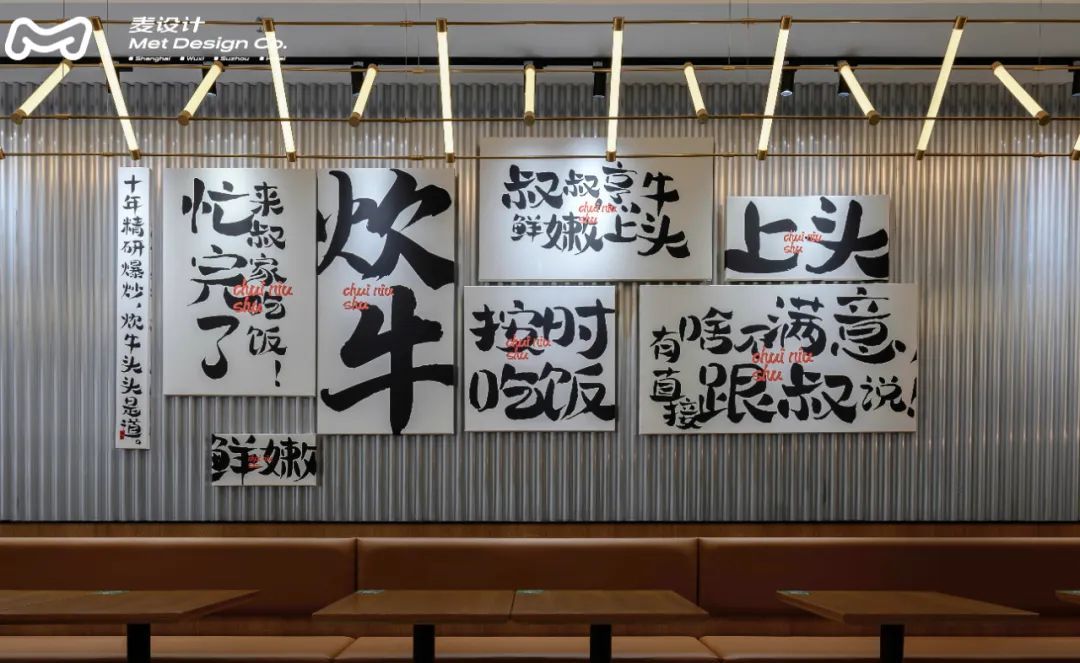 麦设计
Met Design Co.
Shanghai Wuxi Suzhou
十年精研爆炒，炊牛头头是道。
忙完了
来叔家吃饭！
chui niu
shu
炊牛
chui niu
shu
叔叔烹牛
鲜嫩上头
chui niu
shu
上头
chui niu
shu
按时
吃饭
chui niu
shu
有啥不满意，
直接跟叔说！
chui niu
shu
鲜嫩